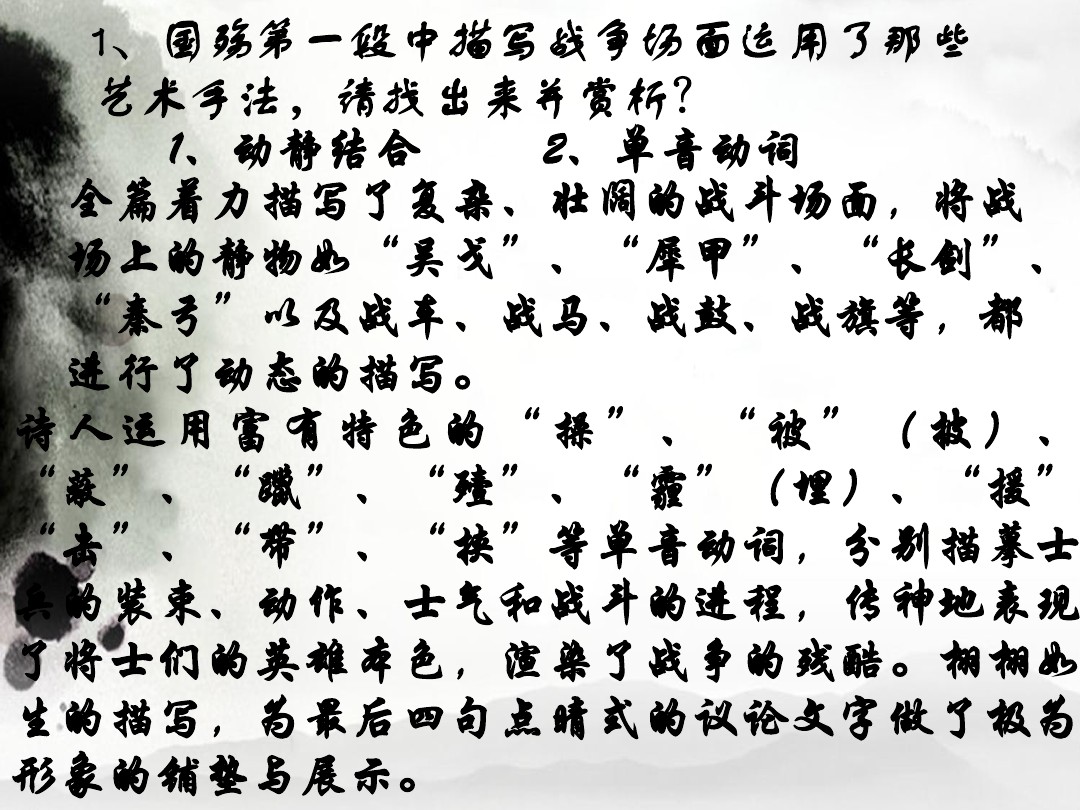 1、国殇第一段中描写战争场面运用了那些
艺术手法，请找出来并赏析？
1、动静结合 2、单音动词
全篇着力描写了复杂、壮阔的战斗场面，将战
场上的静物如“吴戈”、“犀甲”、“长剑”、
“秦弓”以及战车、战马、战鼓、战旗等，都
进行了动态的描写。
诗人运用富有特色的“操”、“被”（披）、
“蔽”、“躐”、“殪”、“霾”（埋）、“援”
“击”、“带”、“挟”等单音动词，分别描摹士
兵的装束、动作、士气和战斗的进程，传神地表现
了将士们的英雄本色，渲染了战争的残酷。栩栩如
生的描写，为最后四句点睛式的议论文字做了极为
形象的铺垫与展示。